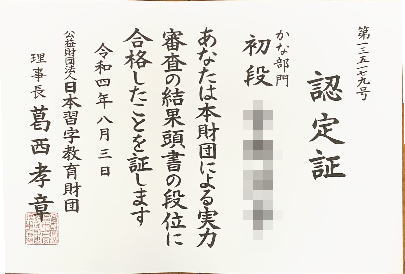 第一三五一七九号
認定証
かな部門
初段
あなたは本財団による実力
審査の結果頭書の段位に
合格したことを証します
令和四年八月三日
公益財団法人日本習字教育財団
理事長 葛西孝章